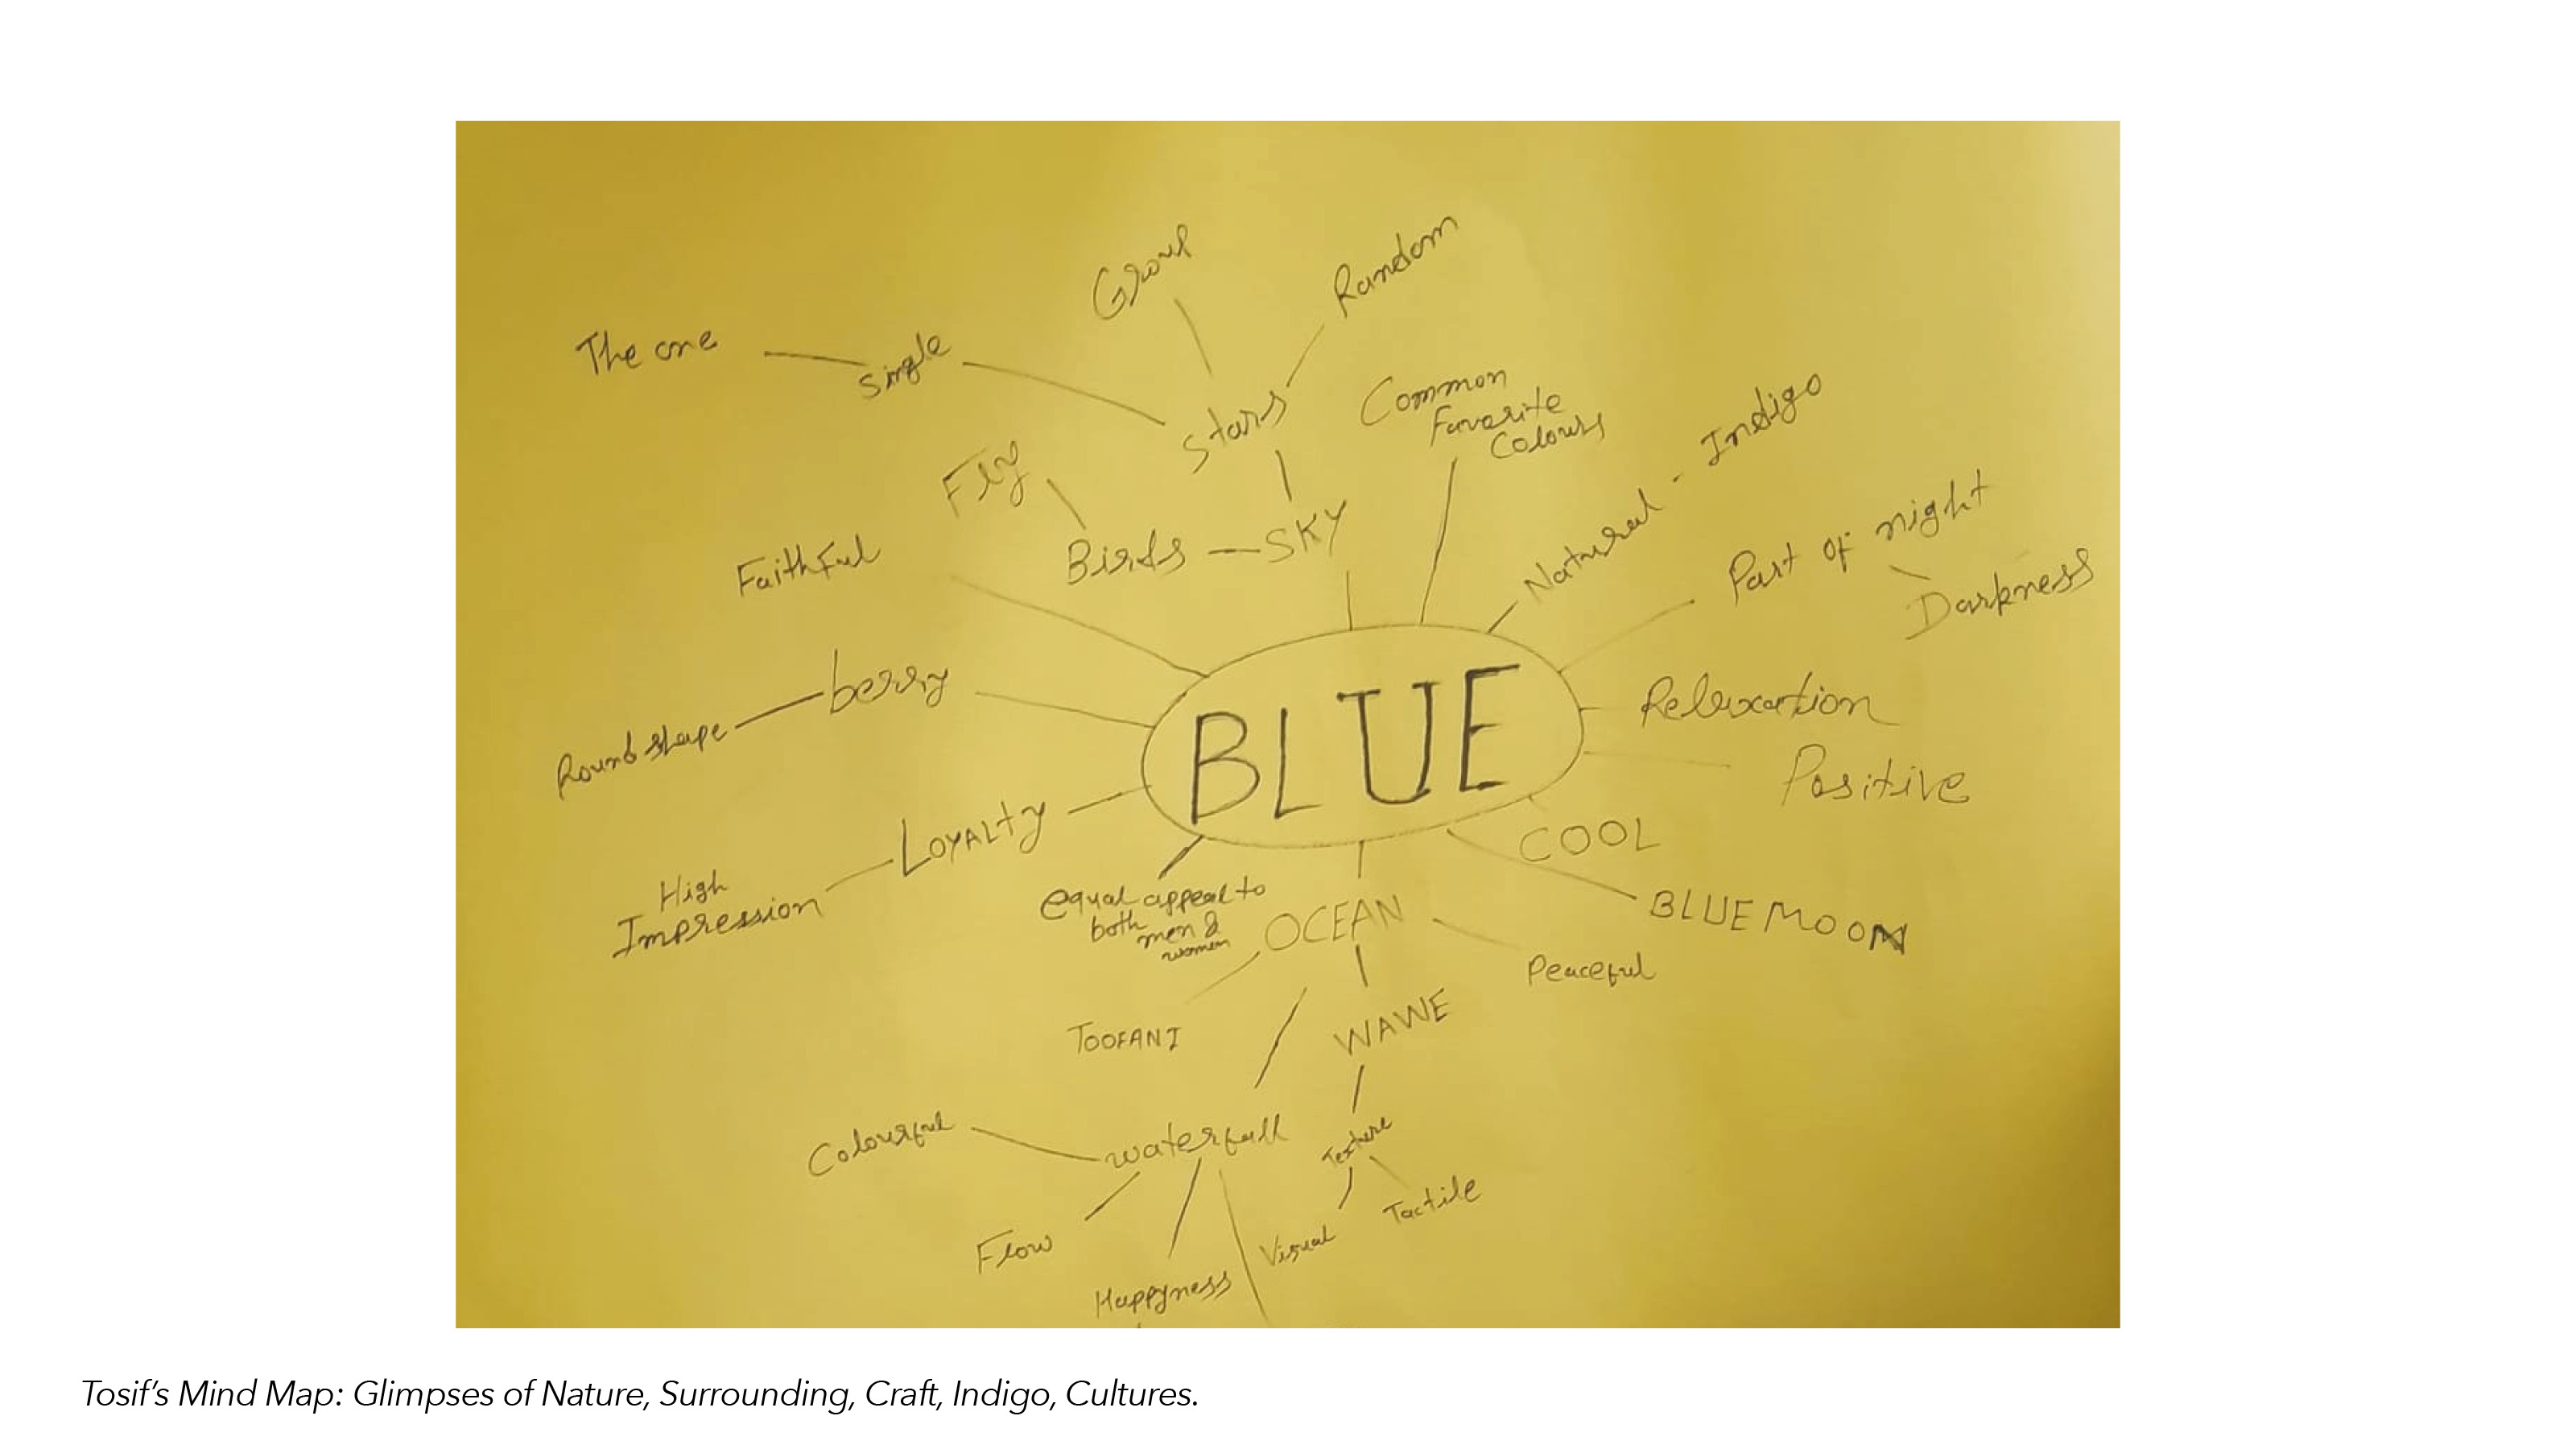 Group
Random
The one
Single
Stars
Common
Favorite
Colours
Fly
Birds
SKY
Natural - Indigo
Part of night
Darkness
Faithful
berry
Round shape
BLUE
Relaxation
Positive
Loyalty
High
Impression
COOL
BLUE MOON
equal appeal to
both men &
women
OCEAN
Peaceful
TOOFANI
WAWE
Colourful
waterfall
Texture
Tactile
Visual
Flow
Happyness
Tosif’s Mind Map: Glimpses of Nature, Surrounding, Craft, Indigo, Cultures.